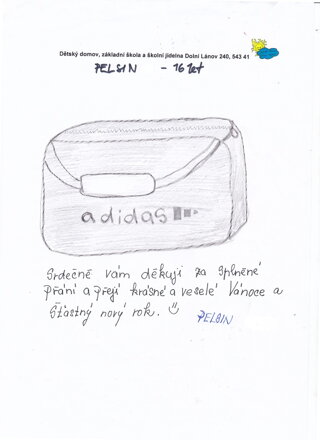 Dětský domov, základní škola a školní jídelna Dolní Lánov 240, 543 41
PELSIN - 16 let
adidas
Srdečně vám děkuji za splněné
přání a přeji krásné a veselé Vánoce a
Šťastný nový rok.
PELSIN